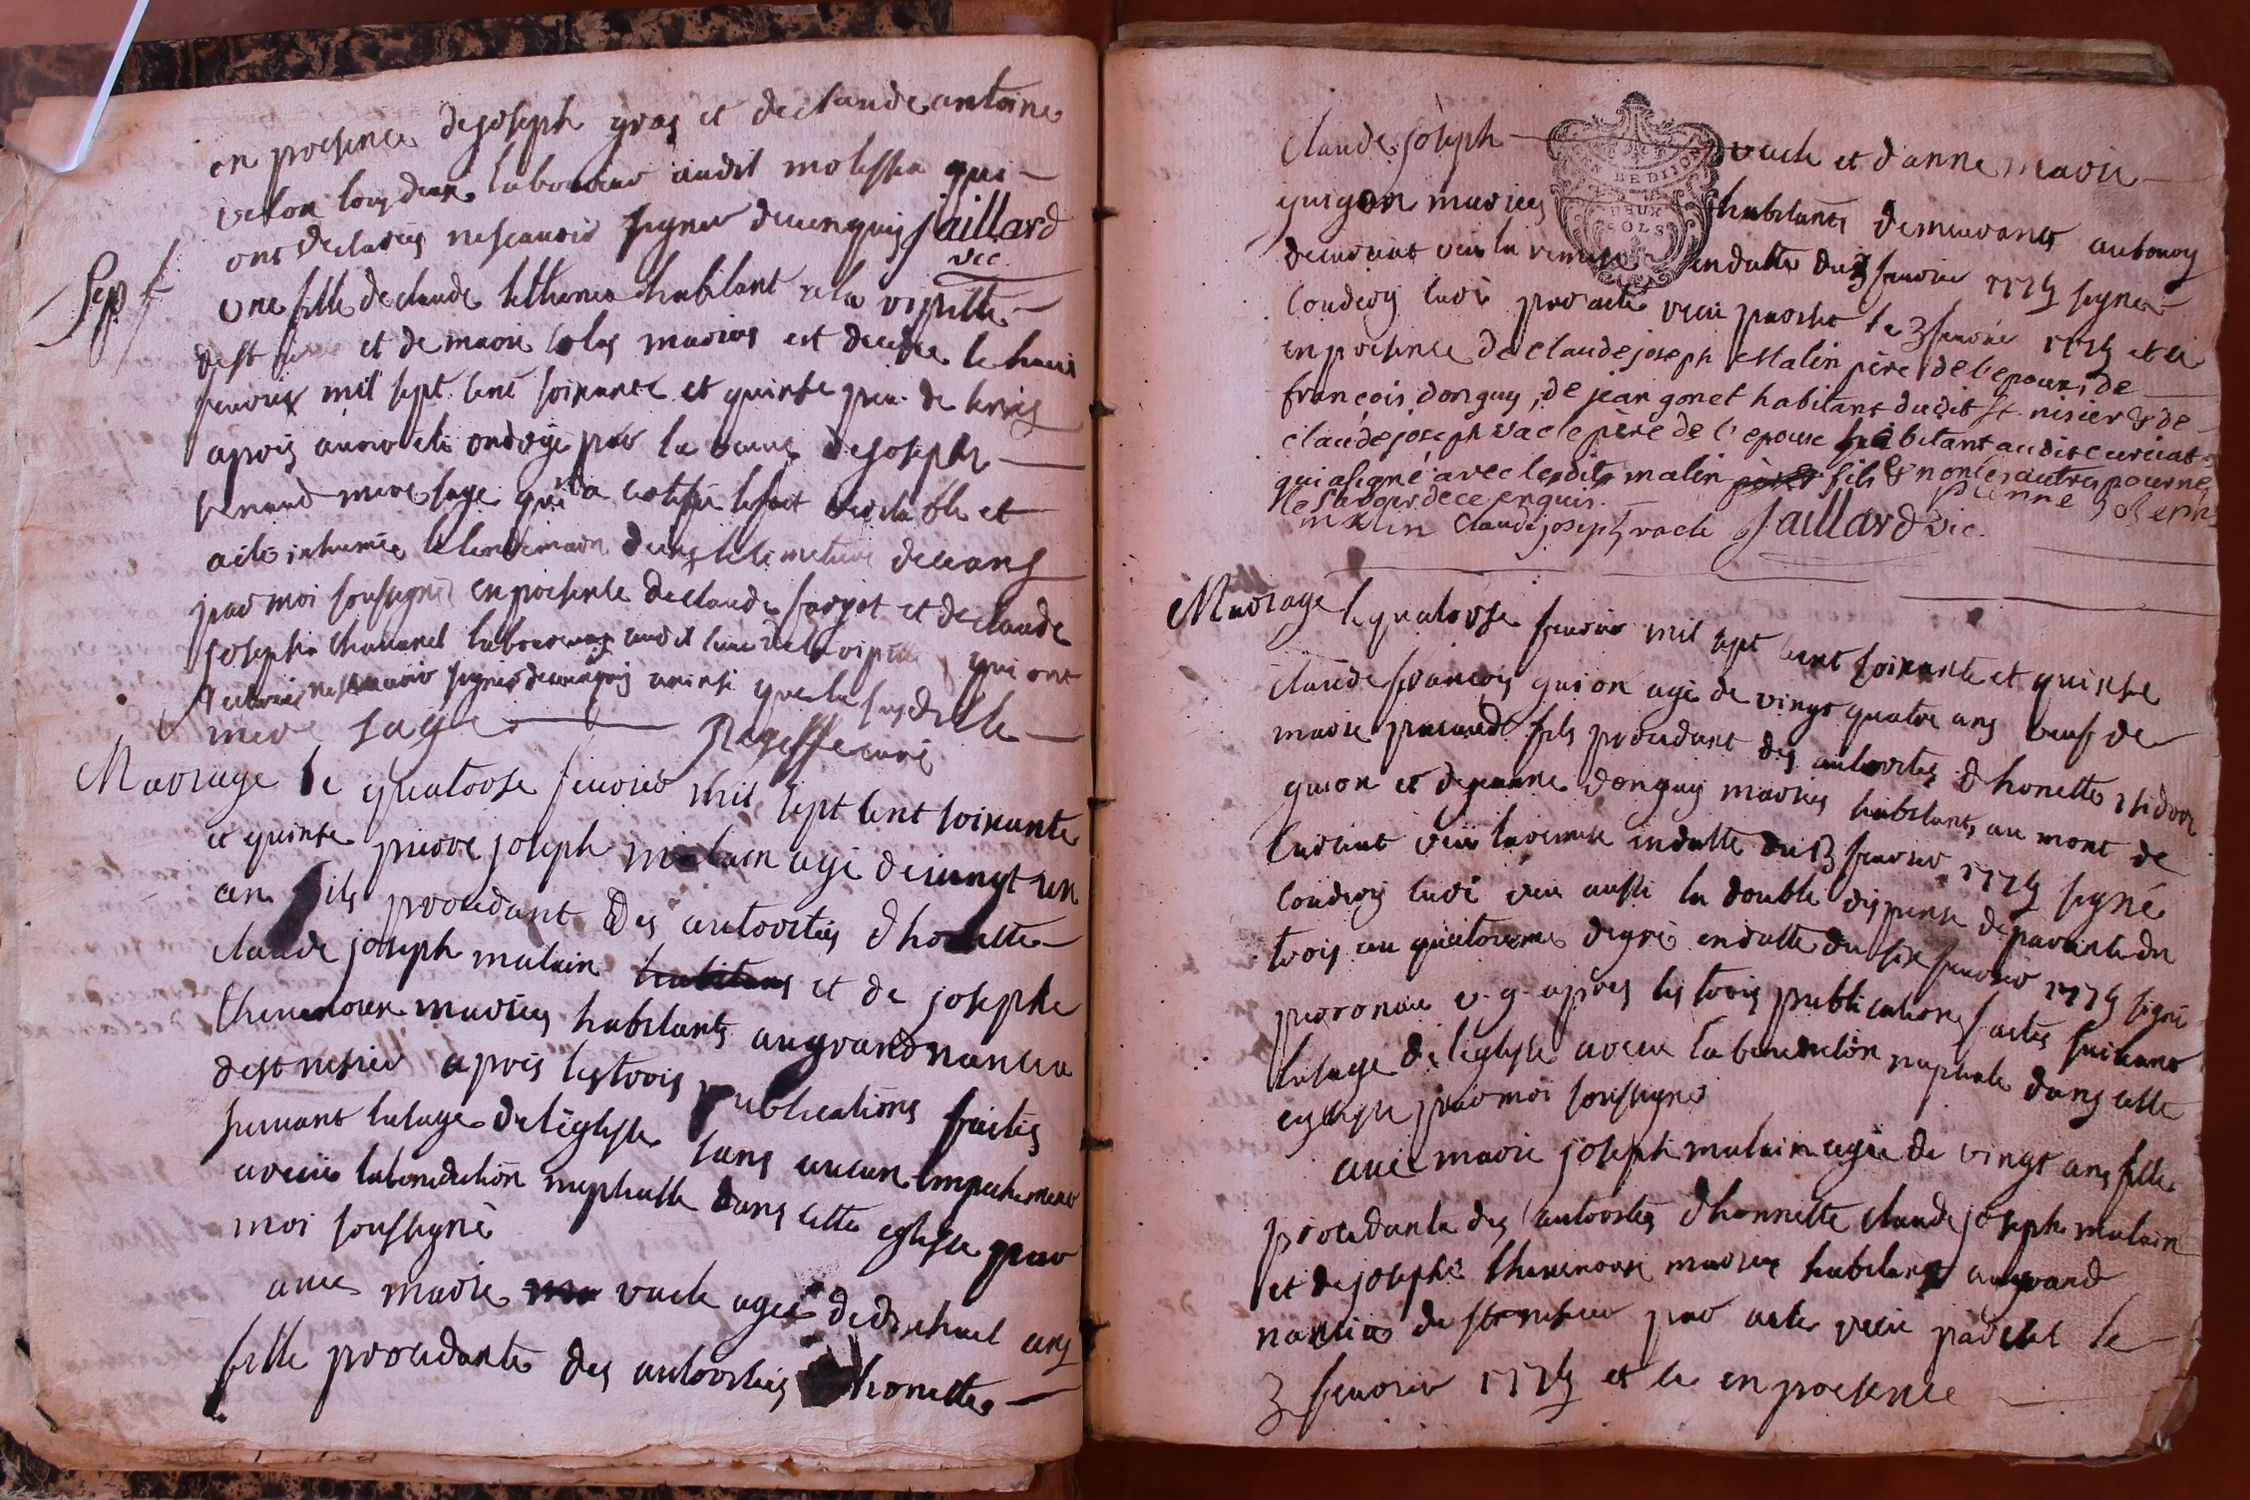 en presence de joseph gras et de claude antoine
velon tous deux laboureur audit molissia qui
ont declarés ne scauoir signer de ce enquis Jaillard
vic.
Sep.
une fille de claude habitant a la vipelle
et de marie colas mariés est decedee le huit
feurier mil sept cent soixante et quinse
apres auoir ete ondoyé par la de joseph
mere sage qui a certifié le fait veritable et
a ete inhumée le lendemain dans le cimetiere de ceans
par moi soussigné en presence de claude fargot et de claude
joseph laboureurs audit lieu de la vipelle qui ont
declarés ne scauoir signer de ce enquis ainsi que la susditte
mere sage Regeffe curé
Mariage le quatorse feurier mil sept cent soixante
et quinse pierre joseph malain agé de vingt un
an fils procedant des autorités d'honette
claude joseph malain habitans et de josephe
theuenoux mariés habitants au grand nancia
de st nisier apres les trois publications faites
suiuant l'usage de l'eglise sans aucun empechement
a recüe la benediction nuptialle dans cette eglise par
moi soussigné
auec marie vacle agée de dixhuit ans
fille procedante des autorités d'honette
claude joseph vacle et d'anne marie
guigon mariés habitants demeurants au bourg
de curciat veu la remise en datte du 3 feurier 1775 signé
Coudroy curé par acte veu parchet le 3 feurier 1775 et ce
en presence de claude joseph Malin père de l'epoux, de
françois donguy, de jean gonet habitant dudit st nisier & de
claude joseph vacle père de l'epouse habitant audit curciat
qui a signé avec lesdits malin père fils & non les autres pour ne
le savoir de ce enquis. pierre joseph
malin Claude joseph vacle Jaillard vic.
Mariage le quatorse feurier mil sept cent soixante et quinse
claude françois guion agé de vingt quatre ans veuf de
marie fils procedant des autorités d'honette isidor
guion et de jeanne donguy mariés habitants au mont de
Curciat veu la remise en datte du 3 feurier 1775 signé
Coudroy curé veu aussi la double dispense de parenté du
trois au quatorieme degré en datte du six feurier 1775 signé
peronnie v. g. apres les trois publications faites suiuant
l'usage de l'eglise a recu la benediction nuptiale dans cette
eglise par moi soussigné
auec marie joseph malain agée de vingt ans fille
procedante des autorités d'honnette claude joseph malain
et de josephe theuenoux mariés habitans au grand
nancia de st nisier par acte veu parchet le
3 feurier 1775 et ce en presence